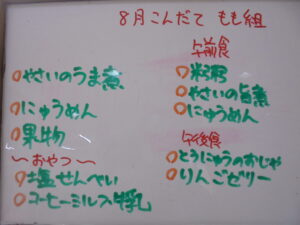 8月こんだて もも組
○やさいのうま煮
○にゅうめん
○果物
〜おやつ〜
○塩せんべい
○コーヒーミルク牛乳
午前食
○軟粥
○やさいの旨煮
○にゅうめん
午後食
○とうにゅうのおじや
○りんごゼリー